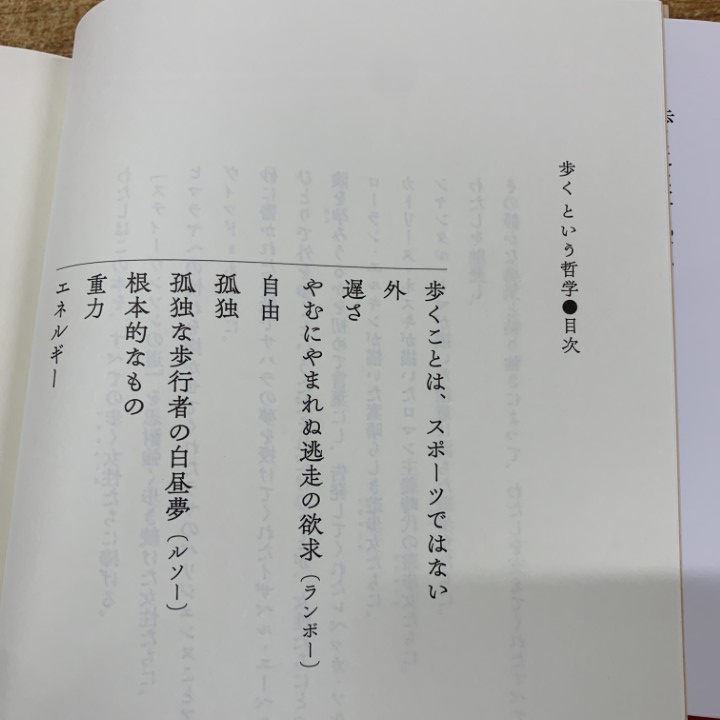 歩くという哲学●目次
歩くことは、スポーツではない
外
遅さ
やむにやまれぬ逃走の欲求（ランボー）
自由
孤独
孤独な歩行者の白昼夢（ルソー）
根本的なもの
重力
エネルギー